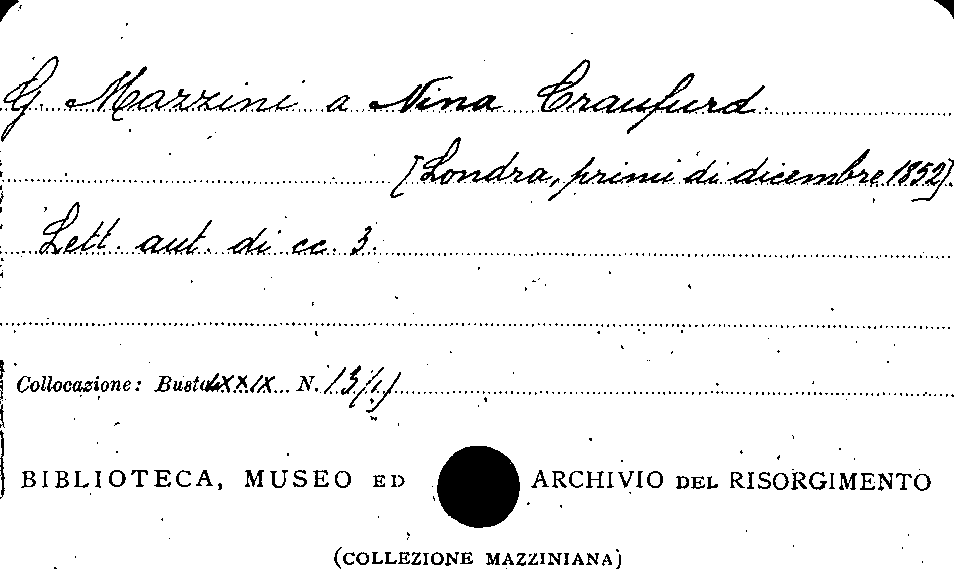 G. Mazzini a Nina Craufurd.
[Londra, primi di dicembre 1852].
Lett. aut. di cc. 3.
Collocazione: Busta LXXIX N. 13/1)
BIBLIOTECA, MUSEO ED ARCHIVIO DEL RISORGIMENTO
(COLLEZIONE MAZZINIANA)